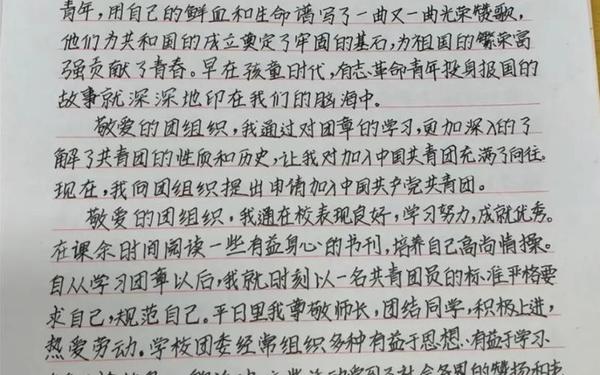 青年,用自己的鲜血和生命谱写了一曲又一曲光荣赞歌,
他们为共和国的成立奠定了牢固的基石,为祖国的繁荣富
强贡献了青春。早在孩童时代,有志革命青年投身报国的
故事就深深地印在我们的脑海中。
敬爱的团组织,我通过对团章的学习,更加深入的了
解了共青团的性质和历史,让我对加入中国共青团充满了向往。
现在,我向团组织提出申请加入中国共产党共青团。
敬爱的团组织,我通在校表现良好,学习努力,成就优秀。
在课余时间阅读一些有益身心的书刊,培养自己高尚情操。
自从学习团章以后,我就时刻以一名共青团员的标准严格要
求自己,规范自己。平日里我尊敬师长,团结同学,积极上进,
热爱劳动。学校团委经常组织多种有益于思想、有益于学习